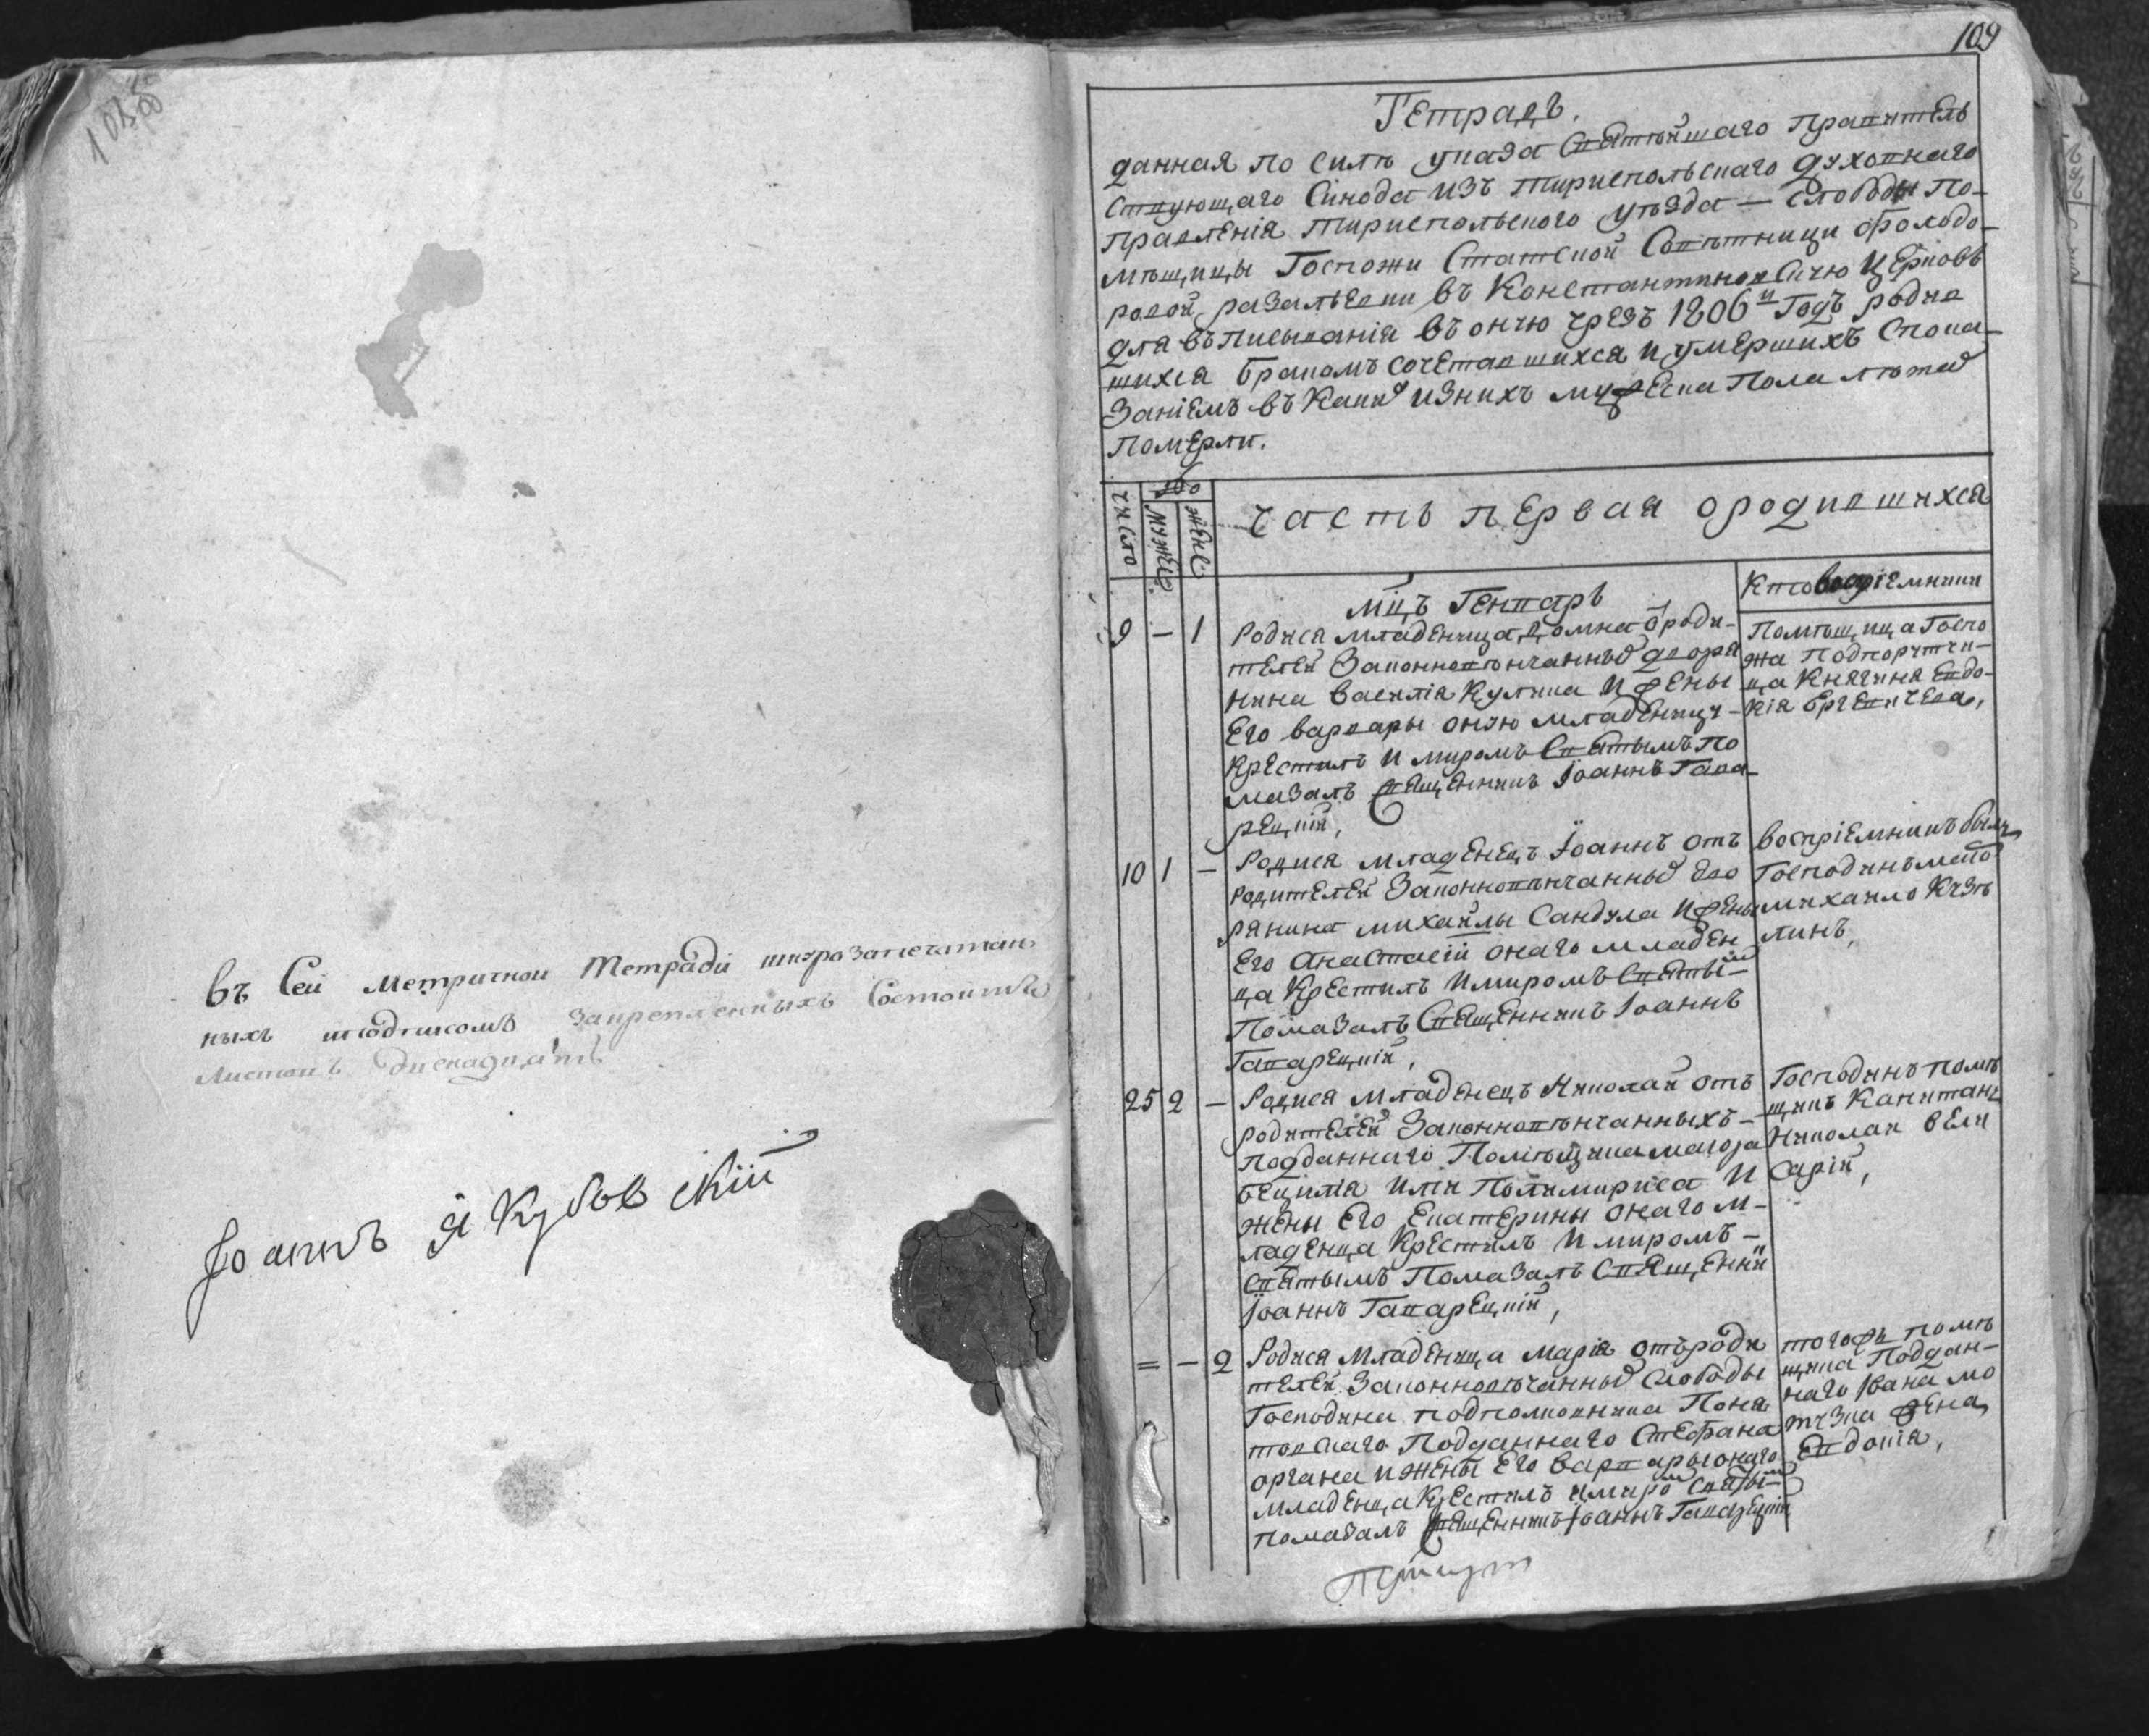 108об
Въ Сей Метричной Тетради шнурозапечатан
ныхъ подписомъ закрепленныхъ Состоитъ
Листовъ двенадцать
Іоаннъ Якубовскій
109
Тетрадь.
данная по силѣ указа Святѣйшаго Правитель
ствующаго Сѵнода изъ тираспольскаго духовнаго
правленія тираспольского уѣзда — слободы по-
мѣщицы Госпожи Статской Совѣтници Фолодо-
ровой въ Константиновскую Церковь
для въписыванія въ оную чрезъ 1806й годъ родив
шихся бракомъ сочетавшихся и умершихъ спока-
заніемъ въ какихъ изнихъ мужеска пола лѣтахъ
померли.
число
мужес.
женс.
часть первая ородившихся
мцъ Генварь
Ктовоспріемники
9 — 1
Родися младеница домна ѿроди-
телей Законновѣнчанныхъ дворя
нина василія Кулика И жены
Его варвары оную младеницу-
Крестилъ И миромъ Святымъ По
мазалъ священникъ Іоаннъ Гава-
рецкій,
Помѣщица Госпо
жа Подпорутчи-
ца Княгиня Евдо-
кія
10 1 —
Родися младенецъ Іоаннъ отъ
родителей Законновѣнчанныхъ дво
рянина михайлы Сандула Ижены
Его Анастасіи онаго младен
ца Крестилъ Имиромъ святымъ
Помазалъ Священникъ Іоаннъ
Гаварецкій,
воспріемникъ былъ
Господинъ маіоръ
михайло Кузь
линъ,
25 2 —
Родися Младенецъ Николай отъ
родителей Законновѣнчанныхъ-
подданнаго Помѣщика маіора
Илія И
жены Его Екатерины онаго м-
ладенца Крестилъ И миромъ-
святымъ Помазалъ Священни
Іоаннъ Гаварецкій,
Господинъ помѣ
щикъ Капитанъ
Николай вели
сарій,
= — 2
Родися Младеница Марія отъроди
телей Законновѣчанныхъ Слободы
Господина подполковника Поня
товскаго Подданнаго Стефана
органа ижены Его Варварыонаго
младенца Крестилъ имиромъ святымъ
помазалъ священникъ Іоаннъ Гаварецкій
тогожъ помѣ
щика Поддан-
наго Ивана мо
жена
Евдокія,